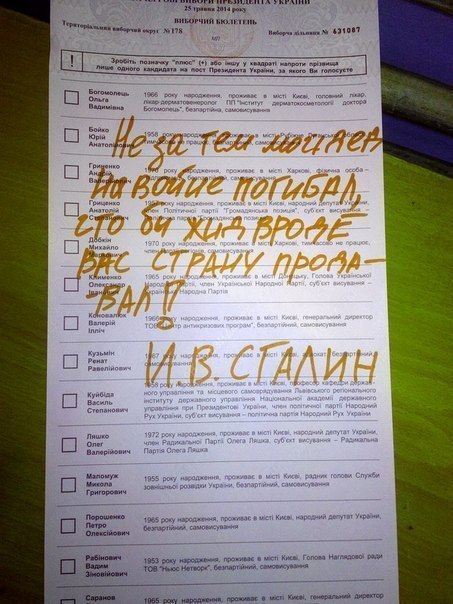 ЧЕРГОВІ ВИБОРИ ПРЕЗИДЕНТА УКРАЇНИ
25 травня 2014 року
ВИБОРЧИЙ БЮЛЕТЕНЬ
Територіальний виборчий округ №178
МП
Виборча дільниця № 631087
! Зробіть позначку "плюс" (+) або іншу у квадраті напроти прізвища
лише одного кандидата на пост Президента України, за якого Ви голосуєте
Богомолець
Ольга
Вадимівна
1966 року народження, проживає в місті Києві, головний лікар,
лікар-дерматовенеролог ПП "Інститут дерматокосметології доктора
Богомолець", безпартійна, самовисування
Бойко
Юрій
Анатолійович
1958
Не за теи мои дед
на войне погибал,
сто би жид вроде
вас страну прода-
-вал!!
И.В. СТАЛИН
Гриценко
Анатолій
член Політичної партії "Громадянська позиція", суб'єкт
Добкін
Михайло
1970 року народження, проживає в місті Харкові, тимчасово не працює,
Клименко
Олександр
1965
Українська
Народна Партія
Коновалюк
Валерій
Ілліч
1966 року народження, проживає в місті Києві, генеральний директор
ТОВ антикризових програм", безпартійний, самовисування
Кузьмін
Ренат
Равелійович
1967 року народження, проживає в місті Києві,
самовисування
Куйбіда
Василь
Степанович
1958 року народження, проживає в місті Києві, професор кафедри держав-
ного управління та місцевого самоврядування Львівського регіонального
інституту державного управління Національної академії державного
управління при Президентові України, член політичної партії Народний
Рух України, суб'єкт висування – політична партія Народний Рух України
Ляшко
Олег
Валерійович
1972 року народження, проживає в місті Києві, народний депутат України,
член Радикальної Партії Олега Ляшка, суб'єкт висування – Радикальна
Партія Олега Ляшка
Маломуж
Микола
Григорович
1955 року народження, проживає в місті Києві, радник голови Служби
зовнішньої розвідки України, безпартійний, самовисування
Порошенко
Петро
Олексійович
1965 року народження, проживає в місті Києві, народний депутат України,
безпартійний, самовисування
Рабінович
Вадим
Зіновійович
1953 року народження, проживає в місті Києві, Голова Наглядової ради
ТОВ "Ньюс Нетворк", безпартійний, самовисування
Саранов
1965 року народження, проживає в місті Києві, генеральний директор